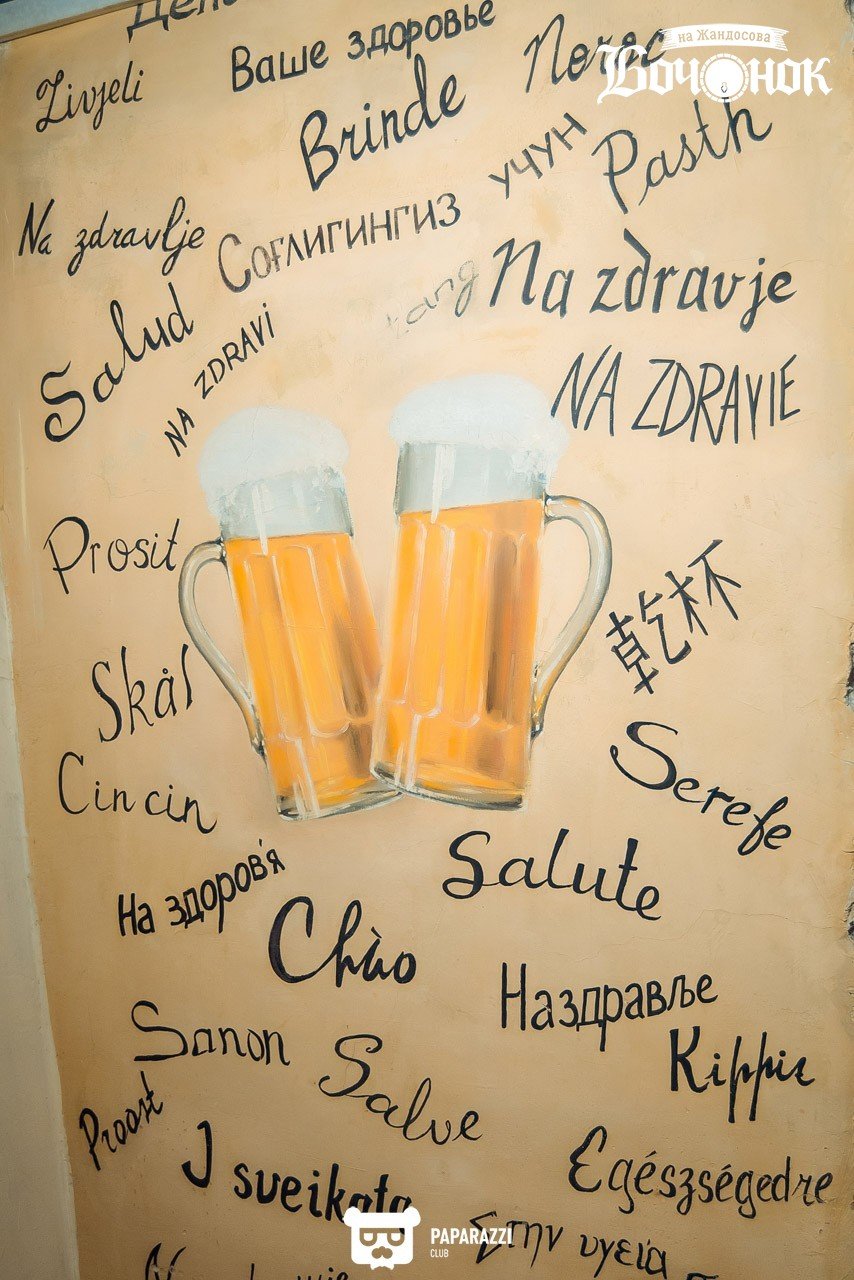 Ваше здоровье
Noroc
на Жандосова
Бочонок
Živjeli
Brinde
Pasth
Na zdravlje
Соғлигингиз учун
Na zdravje
Salud
NA ZDRAVI
NA ZDRAVIE
Prosit
乾杯
Skål
Cin cin
Serefe
Salute
На здоров'я
Chùo
Наздравље
Sanon
Salve
Kippis
Proost
J sveikatą
Egészségedre
Στην υγεία
PAPARAZZI
CLUB